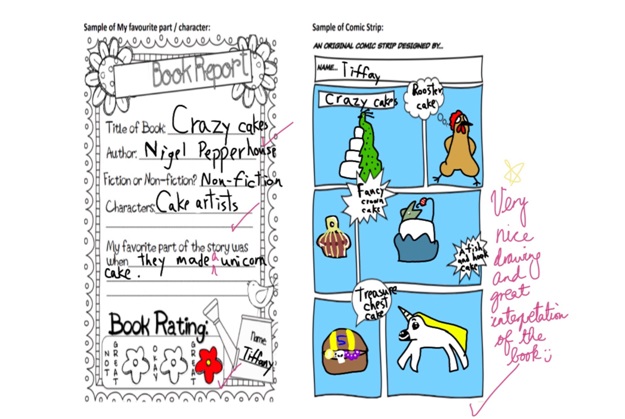 Sample of My favourite part / character:
Book Report
Title of Book: Crazy cakes
Author: Nigel Pepperhouse
Fiction or Non-fiction? Non-fiction
Characters: Cake artists
My favorite part of the story was
when they made a unicorn
cake.
Book Rating:
NOT GREAT OKAY GREAT
Name
Tiffany
Sample of Comic Strip:
AN ORIGINAL COMIC STRIP DESIGNED BY...
NAME... Tiffay
Crazy cakes
Rooster
cake
Fancy
crown
cake
A fish
and hook
cake
Treasure
chest
cake
Very
nice
drawing
and
great
intepretation
of the
book :)